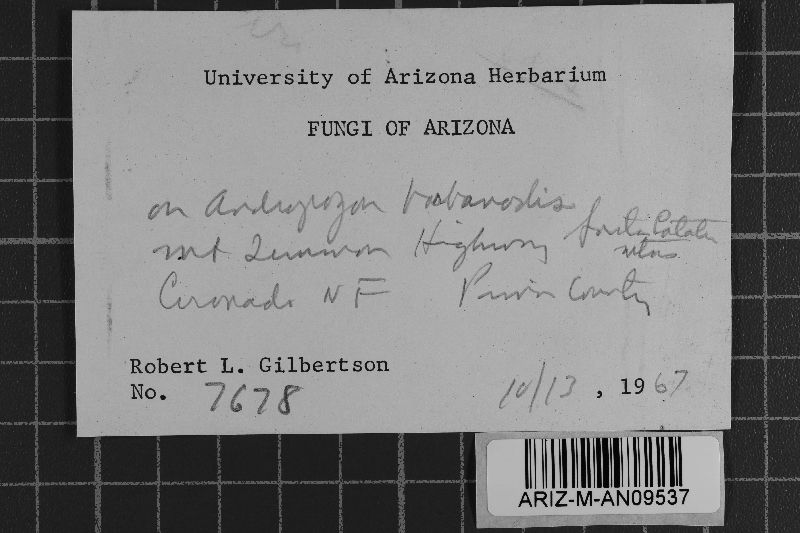 University of Arizona Herbarium
FUNGI OF ARIZONA
on Andropogon barbanodis
Mt Lemmon Highway Santa Catalina
mtns
Coronado NF Pima County
Robert L. Gilbertson
No. 7678 10/13, 1967
ARIZ-M-AN09537